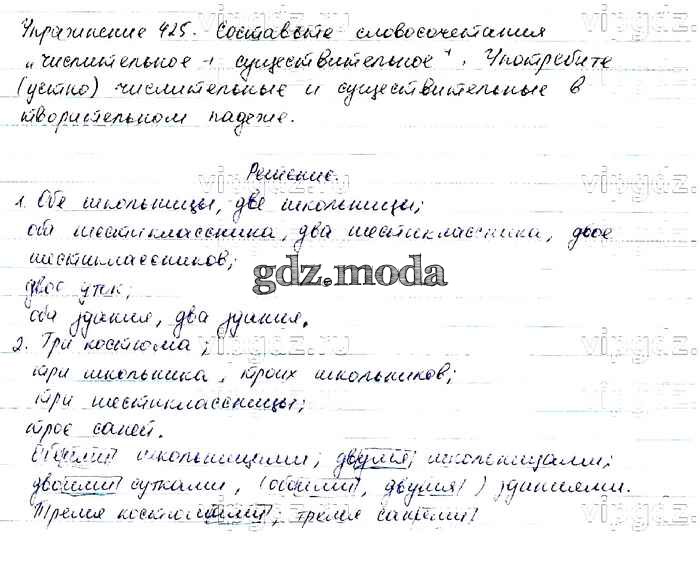 Упражнение 425. Составьте словосочетания
„числительное + существительное". Употребите
(устно) числительные и существительные в
творительном падеже.
Решение.
1. Обе школьницы, две школьницы;
оба шестиклассника, два шестиклассника, двое
шестиклассников;
gdz.moda
двое суток;
оба здания, два здания.
2. Три костюма;
три школьника, троих школьников;
три шестиклассницы;
трое саней.
школьницами; двумя школьницами;
двоими сутками, (обоими, двумя) зданиями.
Тремя костюмами; тремя санями
vipgdz.ru